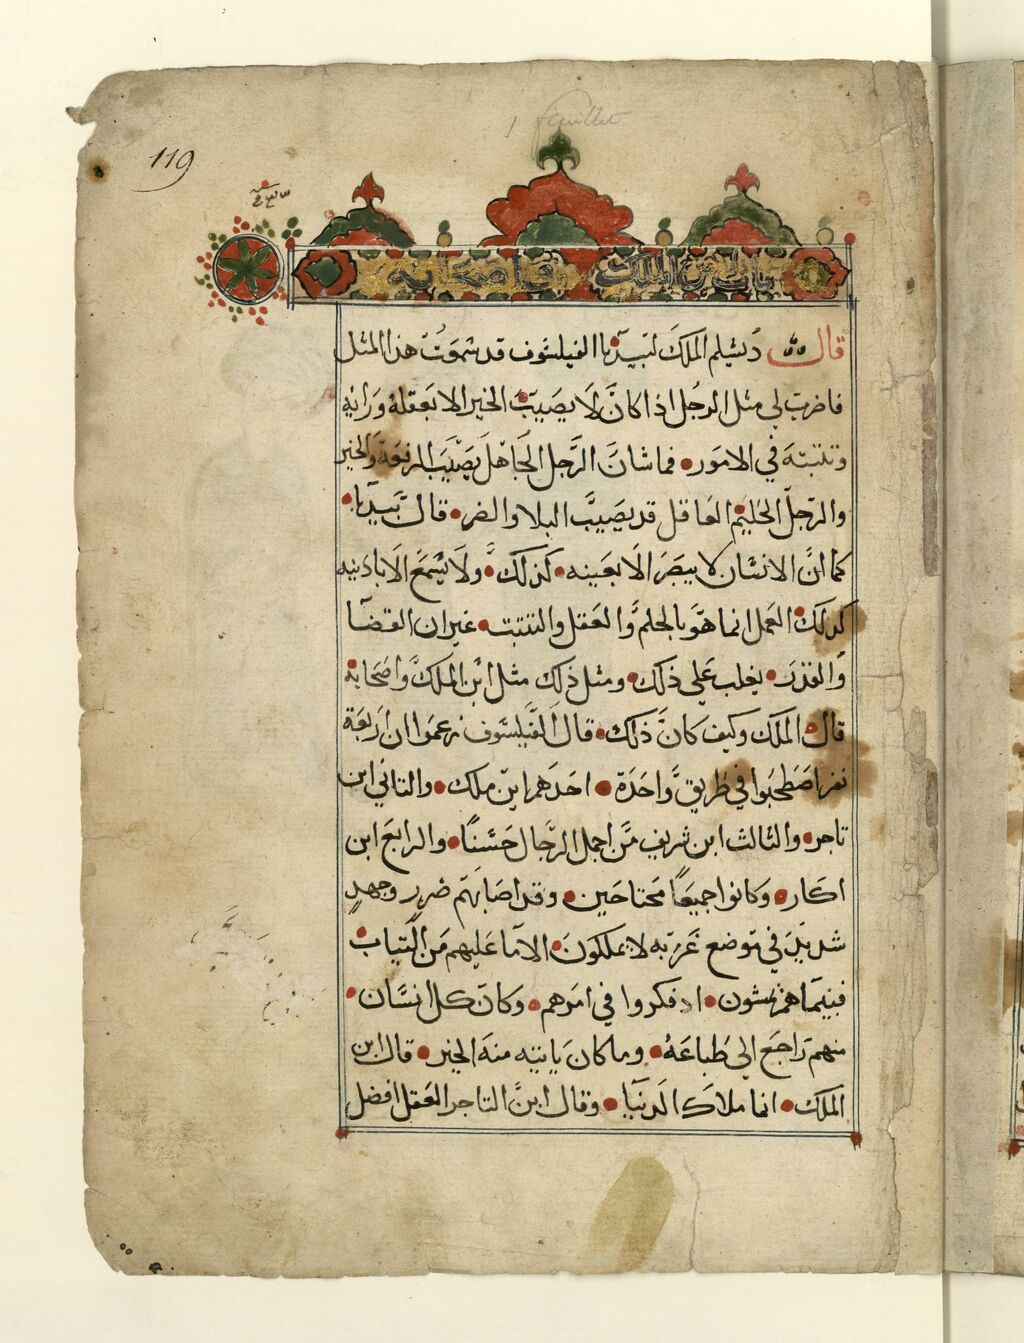 1 feuillet
119
باب ابن الملك واصحابه
قال دبشليم الملك لبيدبا الفيلسوف قد سمعت هذا المثل
فاضرب لي مثل الرجل اذا كان لا يصيب الخير الا بعقله ورائه
وتثبته في الامور • فما شان الرجل الجاهل يصيب الرفعة والخير
والرجل الحليم العاقل قد يصيب البلا والضر • قال بيدبا •
كما ان الانسان لا يبصر الا بعينه • كذلك • ولا يسمع الا باذنيه
كذلك العمل انما هو بالحلم والعقل والتثبت • غير ان القضا
والقدر • يغلب على ذلك • ومثل ذلك مثل ابن الملك واصحابه
قال الملك وكيف كان ذلك • قال الفيلسوف زعموا ان اربعة
نفر اصطحبوا في طريق واحدة • احدهم ابن ملك • والثاني ابن
تاجر • والثالث ابن شريف من اجمل الرجال حسنا • والرابع ابن
اكار • وكانوا جميعا محتاجين • وقد اصابهم ضرر وجهد
شديد في موضع غربه لا يملكون • الا ما عليهم من الثياب •
فبينما هم يمشون • اد فكروا في امرهم • وكان كل انسان •
منهم راجع الى طباعه • وما كان ياتيه منه الخير • قال ابن
الملك • انما ملاك الدنيا • وقال ابن التاجر العقل افضل